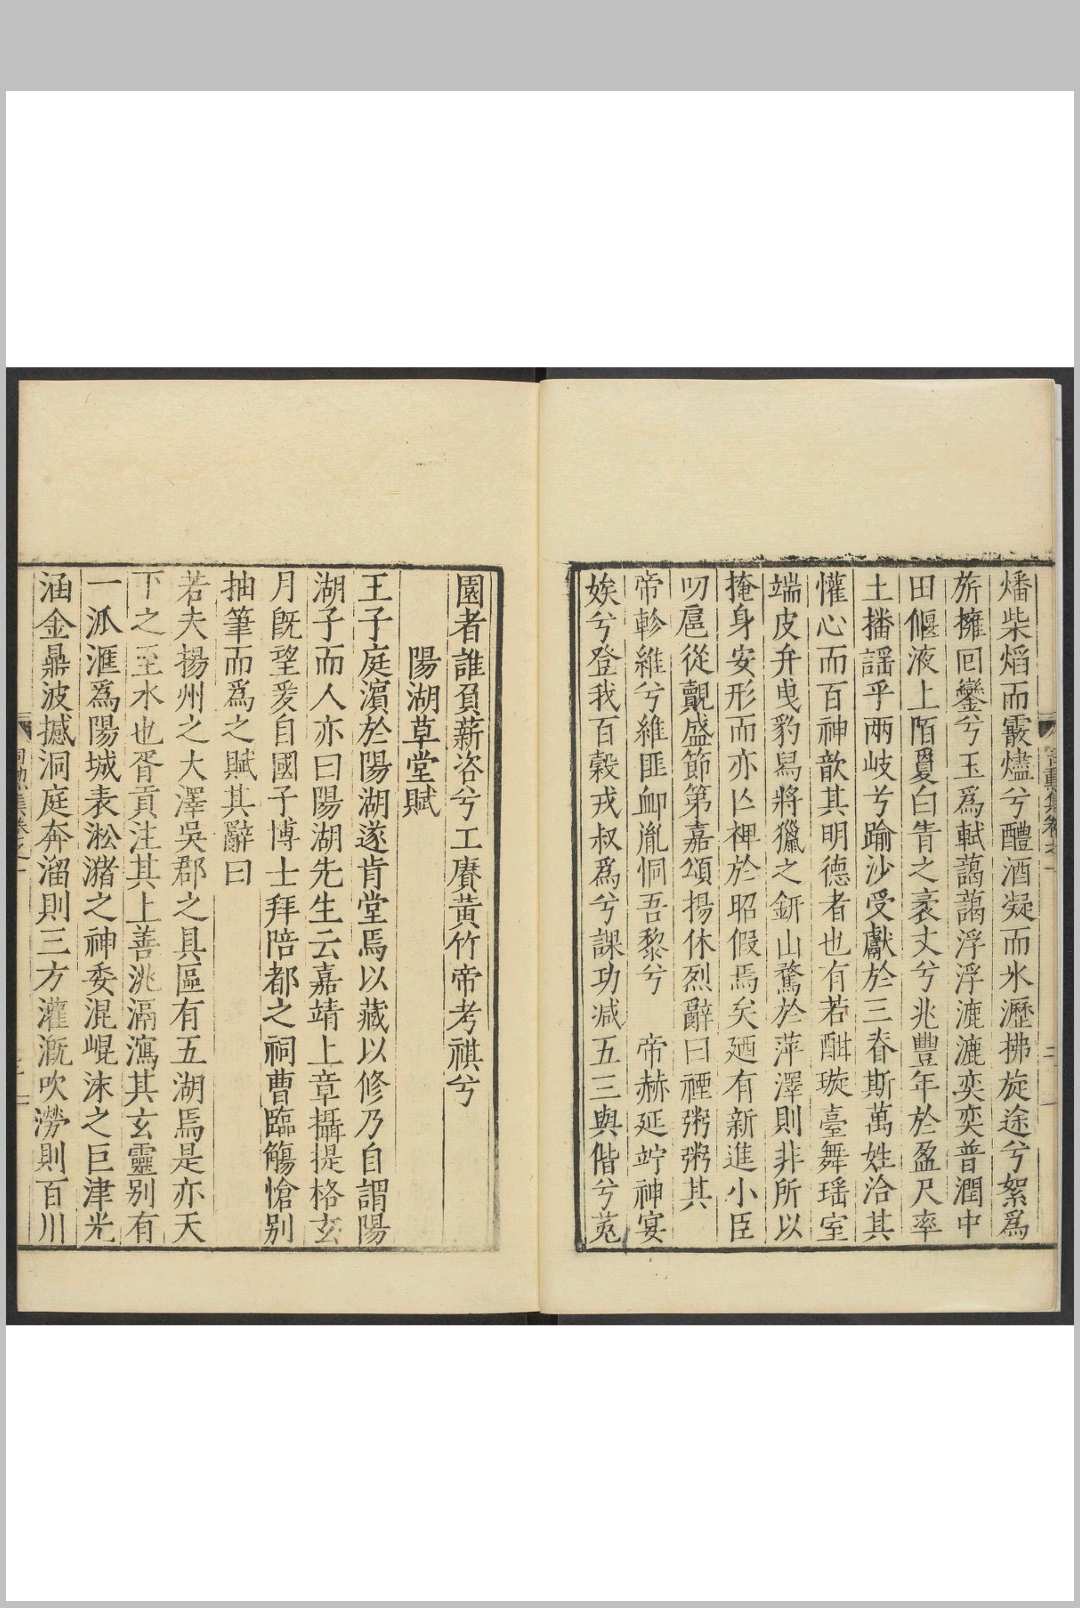 燔柴焰而霰燼兮醴酒凝而氷瀝拂旋途兮絮爲
旂擁回鑾兮玉爲軾藹藹浮浮漉漉奕奕普潤中
田偃液上陌夏白告之袤丈兮兆豐年於盈尺率
土播謡乎兩岐兮踰沙受獻於三脊斯萬姓洽其
懽心而百神歆其明德者也有若酣璇臺舞瑶室
端皮弁曵豹舄將獵之鈃山驁於萍澤則非所以
掩身安形而亦亾裨於昭假焉矣廼有新進小臣
叨扈從覿盛節第嘉頌揚休烈辭曰禋粥粥其
帝軫維兮維匪卹胤恫吾黎兮 帝赫延竚神宴
娭兮登我百榖戎叔爲兮課功减五三與偕兮菟
園者誰負薪咨兮工賡黃竹帝考祺兮
陽湖草堂賦
王子庭濵於陽湖遂肯堂焉以藏以修乃自謂陽
湖子而人亦曰陽湖先生云嘉靖上章攝提格玄
月旣望爰自國子博士拜陪都之祠曹臨觴愴别
抽筆而爲之賦其辭曰
若夫揚州之大澤吳郡之具區有五湖焉是亦天
下之至水也胥貢注其上善洮滆瀉其玄靈别有
一派滙爲陽城表淞瀦之神委混崐沫之巨津光
涵金鼎波撼洞庭奔溜則三方灌漑吹澇則百川